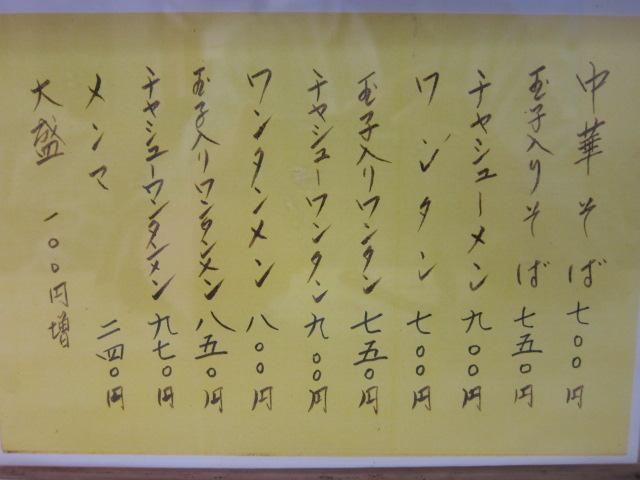 中華そば 七〇〇円
玉子入りそば 七五〇円
チャシューメン 九〇〇円
ワンタン 七〇〇円
玉子入りワンタン 七五〇円
チャシューワンタン 九〇〇円
ワンタンメン 八〇〇円
玉子入りワンタンメン 八五〇円
チャシューワンタンメン 九七〇円
メンマ 二四〇円
大盛 一〇〇円増